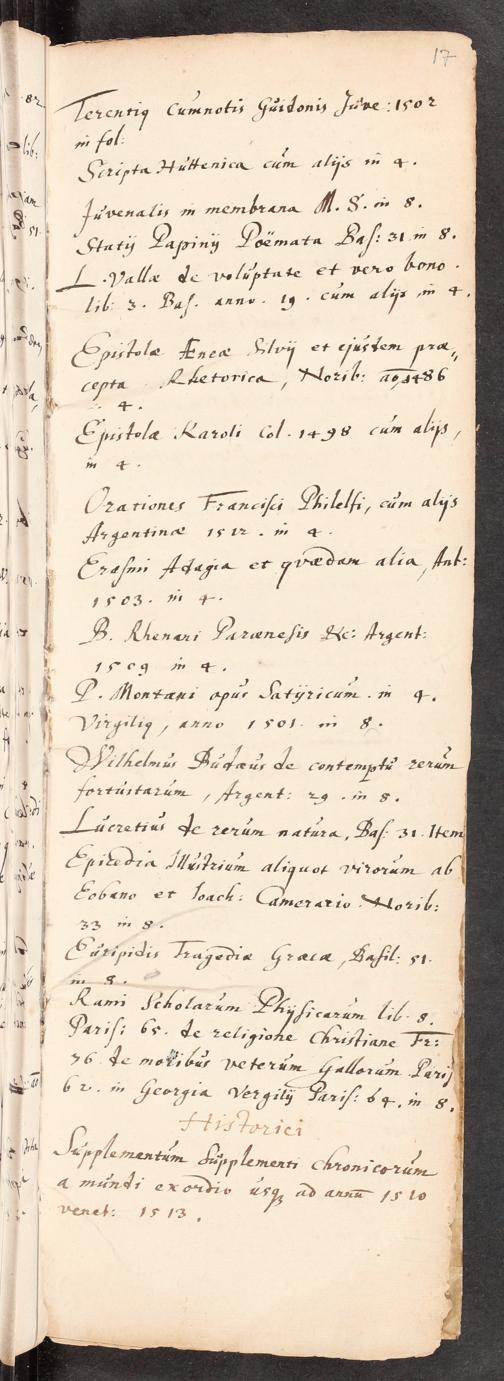 17
Terentiq cum notis Guidonis Juve: 1502
in fol:
Scripta Huttenica cum alijs in 4.
Juvenalis in membrana M. S. in 8.
Statij Papinij Poëmata Bas: 31 in 8.
L. Vallæ de voluptate et vero bono.
lib: 3. Bas. anno. 19. cum alijs in 4.
Epistolæ Æneæ Silvij et ejusdem præ„
cepta Rhetorica, Norib: ao, 1486
4.
Epistolæ Karoli Col. 1498 cum alijs,
in 4.
Orationes Francisci Philelfi, cum alijs
Argentinæ 1512. in 4.
Erasmi Adagia et quædam alia, Ant:
1503. in 4.
B. Rhenani Parænesis &c: Argent:
1509 in 4.
P. Montani opus Satijricum. in 4.
Virgiliq, anno 1501. in 8.
Wilhelmus Budæus de contemptu rerum
fortuitarum, Argent: 29. in 8.
Lucretius de rerum natura, Bas: 31. Item
Epicedia Illustrium aliquot virorum ab
Eobano et Ioach: Camerario. Norib:
33 in 8.
Euripidis Tragediæ Græcæ, Basil: 51.
in 8.
Rami Scholarum Physicarum lib. 8.
Paris: 65. de religione Christiane Fr:
76 de moribus veterum Gallorum Paris
62. in Georgia Vergilij Paris: 64. in 8.
Historici
Supplementum Supplementi chronicorum
a mundi exordio usq₃ ad annū 1510
venet: 1513.